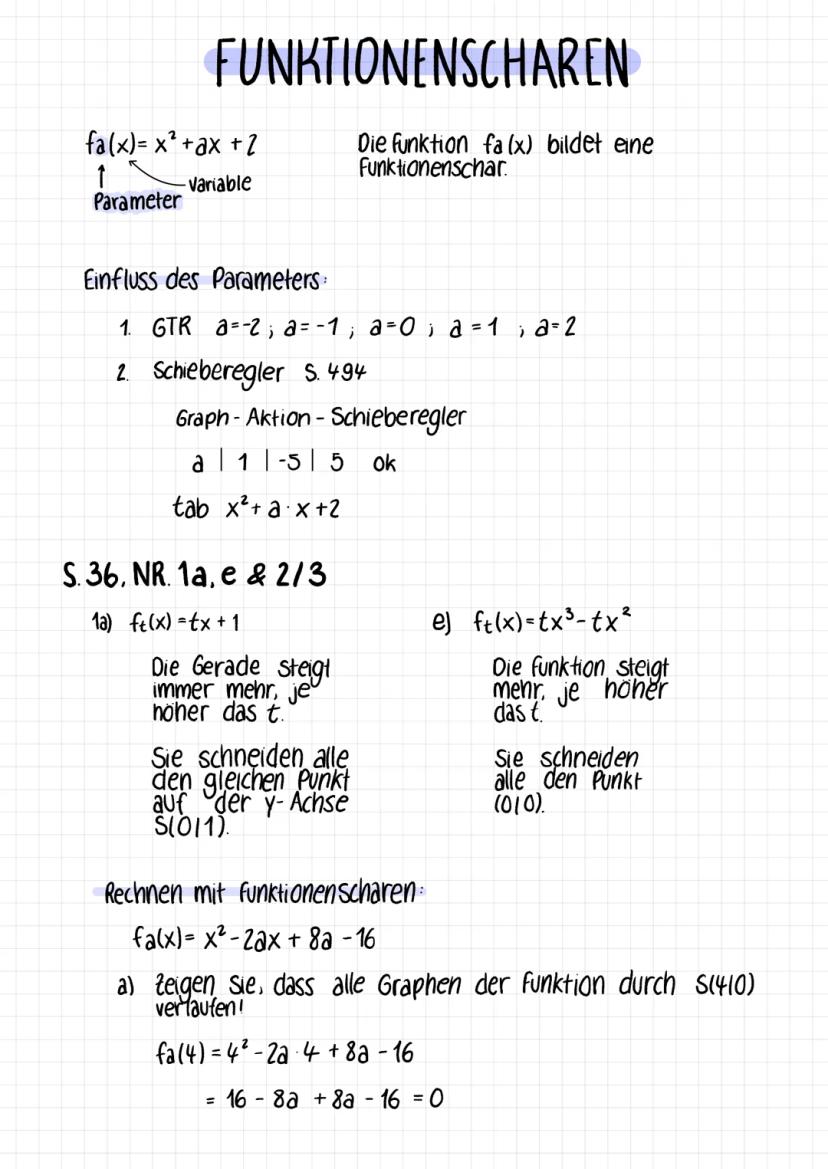 FUNKTIONENSCHAREN
fa(x)= x² +ax +2
Die Funktion fa (x) bildet eine
Funktionenschar.
Variable
Parameter
Einfluss des Parameters:
1. GTR a=-2 ; a=-1 ; a=0 ; a=1 ; a=2
2. Schieberegler S. 494
Graph - Aktion - Schieberegler
a | 1 | -5 | 5 ok
tab x² + a · x +2
S. 36, NR. 1a, e & 2/3
1a) ft(x) =tx + 1
Die Gerade steigt
immer mehr, je
höher das t.
Sie schneiden alle
den gleichen Punkt
auf der y-Achse
S(0|1).
e) ft(x)=tx³-tx²
Die Funktion steigt
mehr, je höher
das t.
Sie schneiden
alle den Punkt
(0|0).
Rechnen mit Funktionenscharen:
fa(x)= x² - 2ax + 8a - 16
a) Zeigen Sie, dass alle Graphen der Funktion durch S(4|0)
verlaufen!
fa(4) = 4² - 2a · 4 + 8a - 16
= 16 - 8a + 8a - 16 = 0